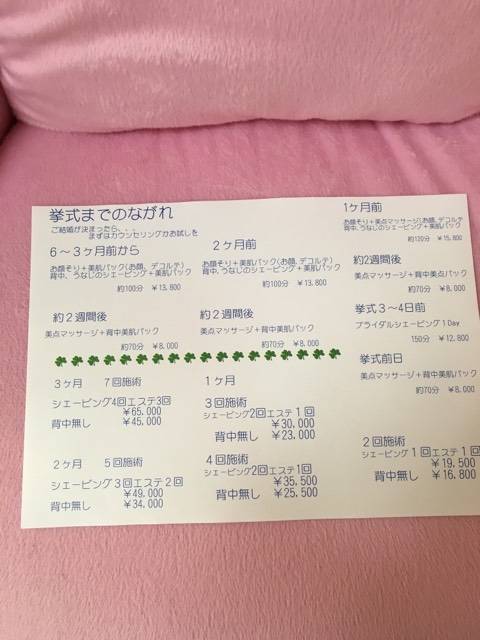 挙式までのながれ
ご結婚が決まったら、、、
まずはカウンセリングかお試しを
6〜3ヶ月前から
お顔そり+美肌パック(お顔、デコルテ)
背中、うなじのシェービング+美肌パック
約100分 ¥13,800
約2週間後
美点マッサージ+背中美肌パック
約70分 ¥8,000
2ヶ月前
お顔そり+美肌パック(お顔、デコルテ)
背中、うなじのシェービング+美肌パック
約100分 ¥13,800
約2週間後
美点マッサージ+背中美肌パック
約70分 ¥8,000
1ヶ月前
お顔そり+美点マッサージ(お顔、デコルテ
背中、うなじのシェービング+美肌パック
約120分 ¥15,800
約2週間後
美点マッサージ+背中美点パック
約70分 ¥8,000
挙式3〜4日前
ブライダルシェービング1Day
150分 ¥12,800
挙式前日
美点マッサージ+背中美肌パック
約70分 ¥8,000
3ヶ月 7回施術
シェービング4回エステ3回
¥65,000
背中無し ¥45,000
2ヶ月 5回施術
シェービング3回エステ2回
¥49,000
背中無し ¥34,000
1ヶ月
3回施術
シェービング2回エステ1回
¥30,000
背中無し ¥23,000
4回施術
シェービング2回エステ1回
¥35,500
背中無し ¥25,500
2回施術
シェービング1回エステ1回
¥19,500
背中無し ¥16,800